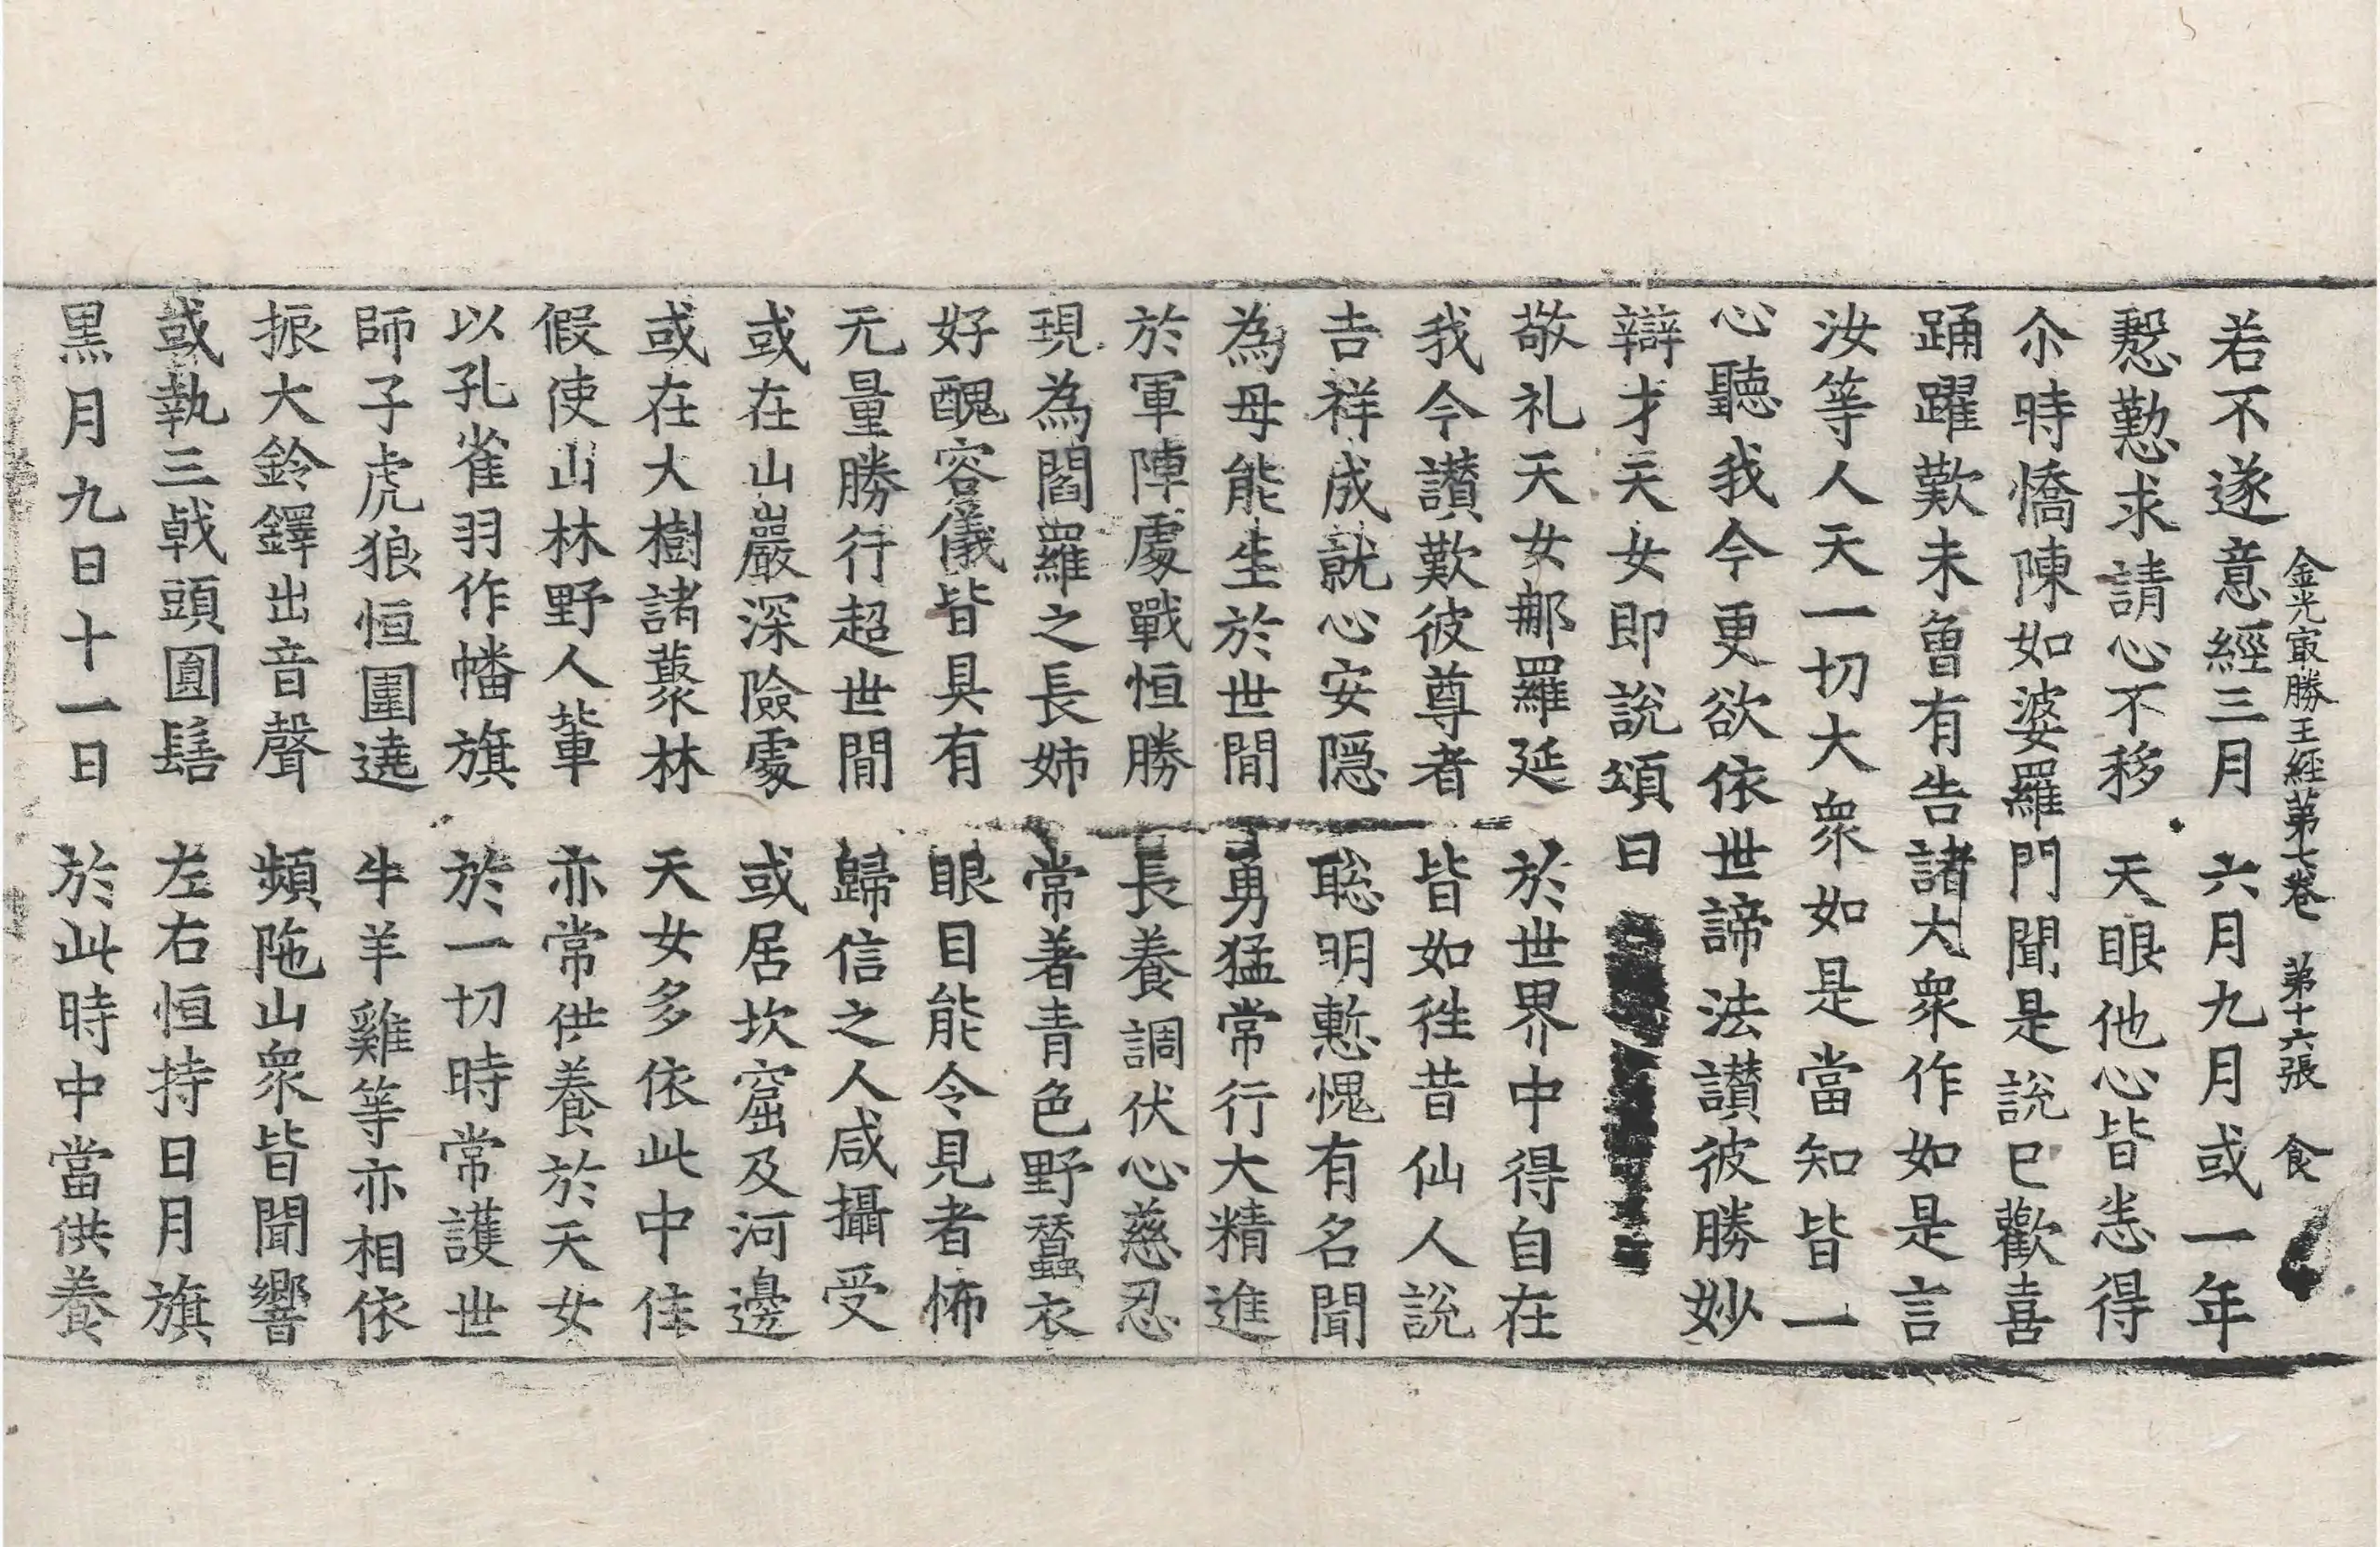 金光㝡勝王經第七卷　第十六張　食
若不遂意經三月　六月九月或一年
慇懃求請心不移　天眼他心皆悉得
尒時憍陳如婆羅門聞是說已歡喜
踊躍歎未曾有告諸大衆作如是言
汝等人天一切大衆如是當知皆一
心聽我今更欲依世諦法讃彼勝妙
辯才天女即說頌曰
敬礼天女那羅延　於世界中得自在
我今讃歎彼尊者　皆如徃昔仙人說
吉祥成就心安隱　聡明慙愧有名聞
為母能生於世閒　勇猛常行大精進
於軍陣處戰恒勝　長養調伏心慈忍
現為閻羅之長姉　常著青色野蠶衣
好醜容儀皆具有　眼目能令見者怖
无量勝行超世閒　歸信之人咸攝受
或在山巖深險處　或居坎窟及河邊
或在大樹諸藂林　天女多依此中住
假使山林野人輩　亦常供養於天女
以孔雀羽作幡旗　於一切時常護世
師子虎狼恒圍遶　牛羊雞等亦相依
振大鈴鐸出音聲　頻陁山衆皆聞響
或執三戟頭圓髻　左右恒持日月旗
黒月九日十一日　於此時中當供養